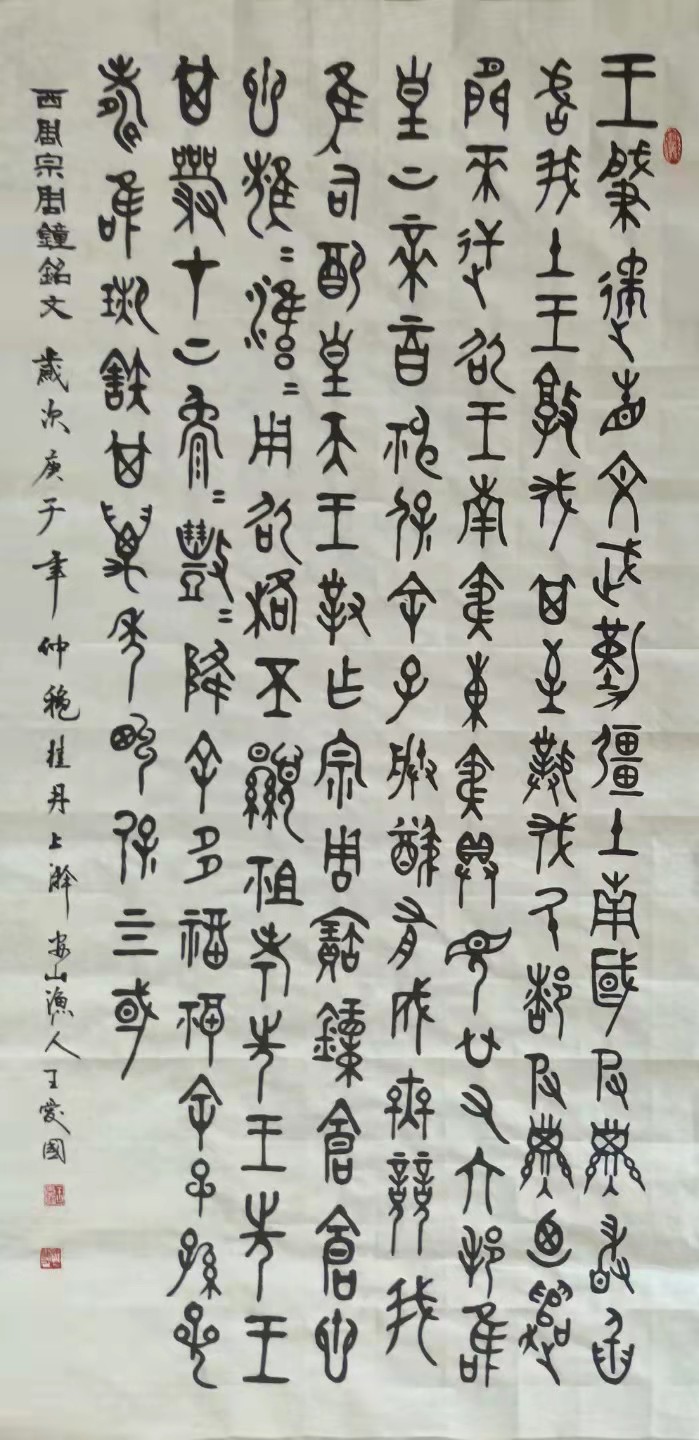 王肇遹省文武勤疆土南國𠬝孳敢臽
處我土王敦伐其至撲伐厥都𠬝孳廼遣
閒來逆卲王南夷東夷具見廿又六邦隹
皇上帝百神保余小子朕猷有成亡競我
隹司配皇天王對乍宗周寶鐘倉倉悤
悤雝雝用卲格丕顯祖考先王先王
其嚴在上降余多福福余孫
參壽唯琍㝬其萬年畯保四國
西周宗周鐘銘文 歲次庚子年仲穐桂月上澣 安山漁人王愛國